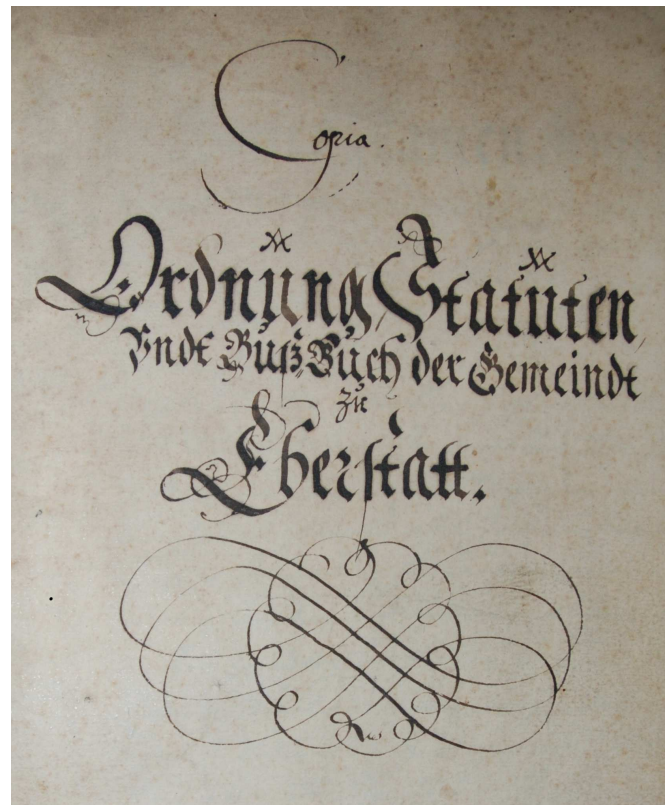 Copia.
Ordnung, Statuten,
Vndt Buß Buch der Gemeindt
zu
Eberstatt.